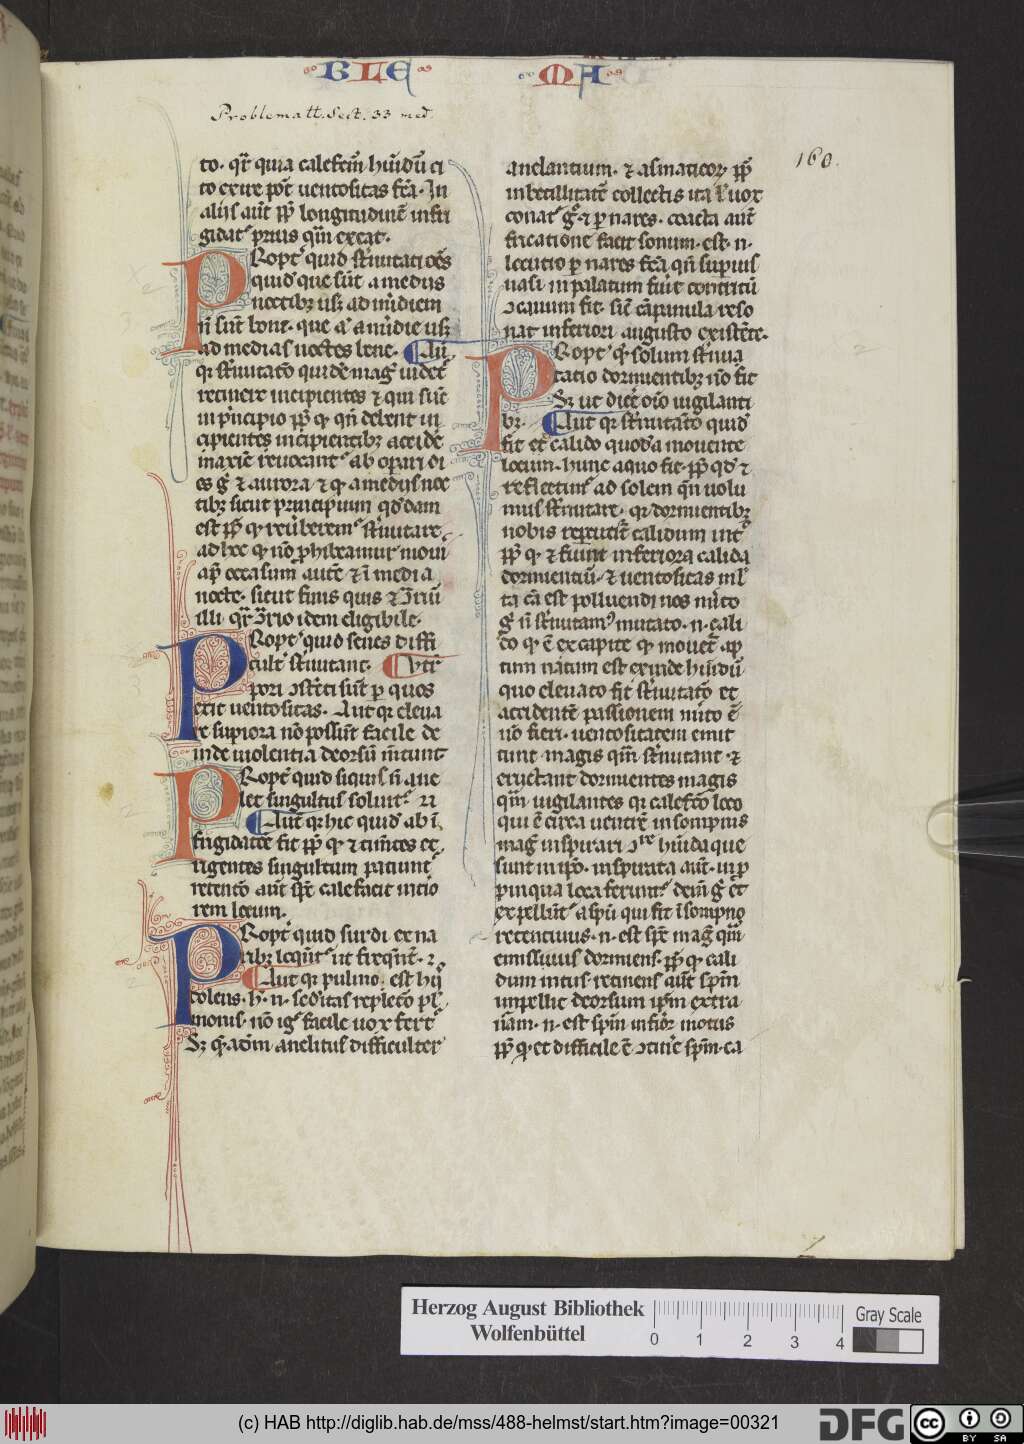 BLE MA
Problematt. Sect. 33 med.
160.
to. qr̄ quia calefcm̄ hu̅du̅ ci
to exire pot̄ uentositas fc̄a. In
alijs aut̄ pp̄ longitudinē infri
gidatᷣ prius qm̄ exeat.
PRoptᷣ quid st̄nutatioēs
quidᷣ que su̅t a medijs
noctibꝫ usqꝫ ad m̄idiem
n̄ su̅t bone. que aᷣ a m̄idie usqꝫ
ad medias noctes bene. Au̅
qꝛ st̄nutatō quidē magᷤ uidet̄
retinere incipientes ⁊ qui su̅t
in p̄ncipio pp̄ qᷣ qn̄ debent in
cipientes incipientibꝫ accidē
maxīe reuocantᷣ ab opari di
es gᷣ ⁊ aurora ⁊ qᷣ a medijs noc
tibꝫ sicut principium qd̄dam
est pp̄ qᷣ reu̅beremᷣ st̄nutare
ad hec qᷣ nō phibeamur moui
ap̄ occasum aute̅ ⁊ ī media
nocte. sicut finis quis ⁊ ꝯr̄iu̅
illi. qr̄ ꝯr̄io idem eligibile.
PRoptᷣ quid senes diffi
cult̄ st̄nutant. Utr̄
pori ꝯst̄cti su̅t ꝑ quos
exit uentositas. Aut qꝛ eleua
re supiora nō possu̅t facile de
inde uiolentia deorsu̅ mᷤtunt
PRoptᷣ quid siquis sᷤ ane
let singultus soluitᷣ
Aut̄ qꝛ hic quidᷣ ab ī
frigidatōe fit pp̄ qᷣ ⁊ timētes et
rigentes singultum patiuntᷣ
retentō aut̄ spc̄ calefacit intio
rem locum.
PRoptᷣ quid surdi ex na
ribꝫ loqu̅tᷣ ut freqn̄t.
Aut qꝛ pulmo. est hij
toleus. h. n. sed̄itas repletō pl̄
monis. nō igᷣ facile uox fertᷣ
Sꝫ qᷣadm̄ anelitus difficulter
anelantium. ⁊ asmaticoꝝ pp̄
inbecillitatē collectis ita l̄ uox
conatᷣ gᷣ ⁊ ꝑ nares. coacta aut̄
fricatione facit sonum. est. n.
locutio ꝑ nares fc̄a qn̄ suꝑius
uasi in palatum fu̅it contritu̅
ꝯcauum fit. sic̄ ca̅panula reso
nat inferiori angusto existēte.
PRoptᷣ qᷣ solum st̄nu
tatio dormientibꝫ nō fit
Sꝫ ut dicᷣ oīo uigilanti
bꝫ. Aut qꝛ st̄nutatō quidᷣ
fit ex calido quoda̅ mouente
locum. hunc a quo fit. pp̄ qd̄ ⁊
reflectimᷣ ad solem qn̄ uolu
mus st̄nutare. qꝛ dormientibꝫ
nobis repcutitᷣ calidum intᷣ
pp̄ qᷣ ⁊ fiu̅nt inferiora calida
dormientiu̅. ⁊ uentositas ml̄
ta ca̅ est polluendi nos nīto
gᷣ n̄ st̄nutamꝰ mutato. n. cali
do qᷣ ē ex capite qᷣ mouetᷣ. ap
tum natum est exinde hu̅du̅
quo eleuato fit st̄nutatō et
accidentē passionem nīto ē
nō fieri. uentositatem emit
tunt magis qm̄ st̄nutant. ⁊
eructant dormientes magis
qm̄ uigilantes qꝛ calefcō loco
qui ē circa uentrē in sompnis
magᷤ inspirari ꝯᵗʳᵉ hu̅da que
sunt in ip̄o. inspirata aut̄. in ꝓ
pinqua loca feruntᷣ. dein̄ gᷣ et
expellu̅tᷣ a spu̅ qui fit ī sompno
retentiuus. n. est spc̄ magᷤ qm̄
emissiuus dormiens. pp̄ qᷣ. cali
dum intus retinens aut̄ spm̄
impellit deorsum ip̄m extra
nām. n. est spm̄ infior̄ motus
pp̄ qᷣ. et difficile ē ꝯtin̄e spm̄. ca
Herzog August Bibliothek
Wolfenbüttel
0 1 2 3 4
Gray Scale
(c) HAB http://diglib.hab.de/mss/488-helmst/start.htm?image=00321
DFG
cc BY SA